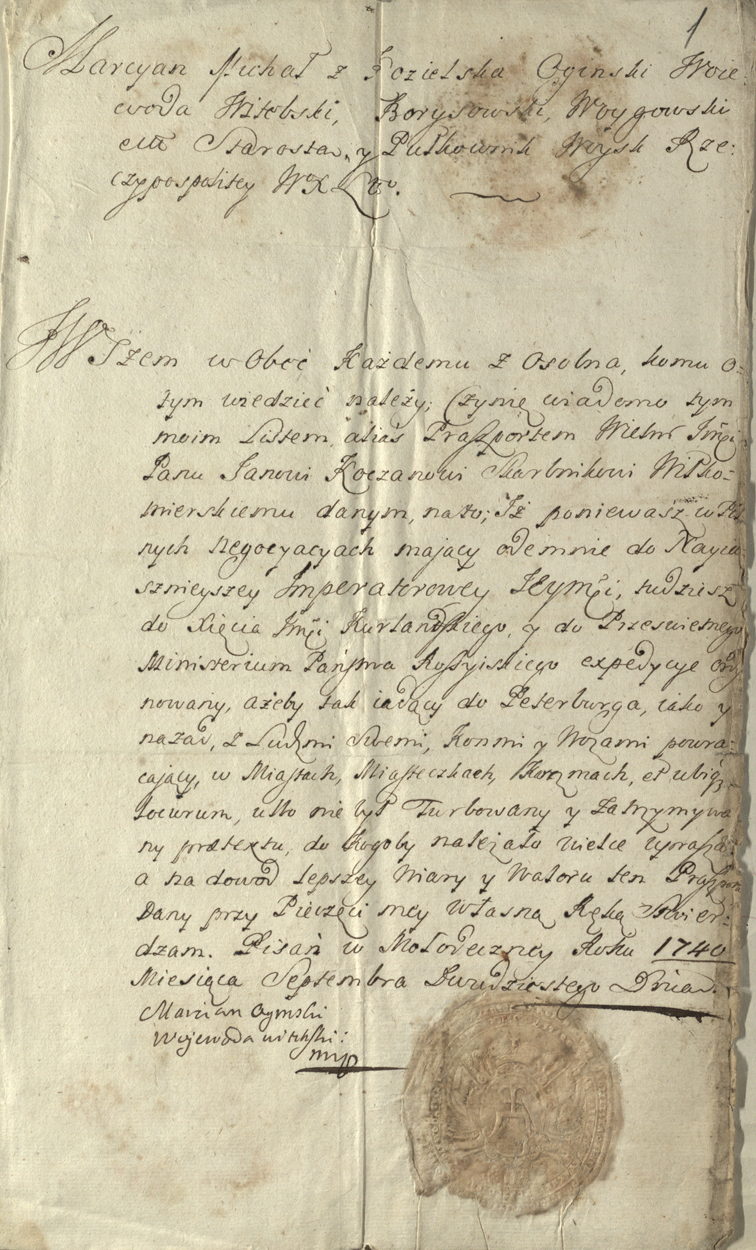 1
Marcyan Michał z Kozielska Oginski Woie:
woda Witebski, Borysowski, Woygowski
ett Starosta, y Pułkownik Woysk Rze:
czypospolitey WX Lgo.
WSzem w Obec Każdemu z Osobna, komu O
tym wiedzieć należy; Czynię wiadomo tym
moim Listem, alias Praszportem Wielm Jmći
Panu Janowi Koczanowi Skarbnikowi Wiłko-
mierskiemu danym, na to; Jż poniewasz w
nych Negocyacyach mający odemnie do Nayia
sznieyszey Imperatorowey Jeymći, tudziesz
do Xięcia Jmći Kurlandskiego, y do Przeswietnego
Ministerium Państwa Rossyiskiego expedycye ordy
nowany, ażeby tak iadący do Peterburga, iako y
nazad, z Ludzmi Swemi, Konmi y Wozami powra-
cający, w Miastach, Miasteczkach, Karczmach, et ubiqz
locorum, ullo nie był Turbowany y Zatrzymywa
ny prætextu, do kogoby należało wielce upraszam
a na dowod lepszey Wiary y Waloru ten Praszport
Dany przy Pieczęci mey Własną Ręką Stwier-
dzam. Pisan w Mołodeczney Roku 1740
Miesiąca Septembra Dwudziestego Dnia.
Marcian Ogiński
Wojewoda witebski:
mp